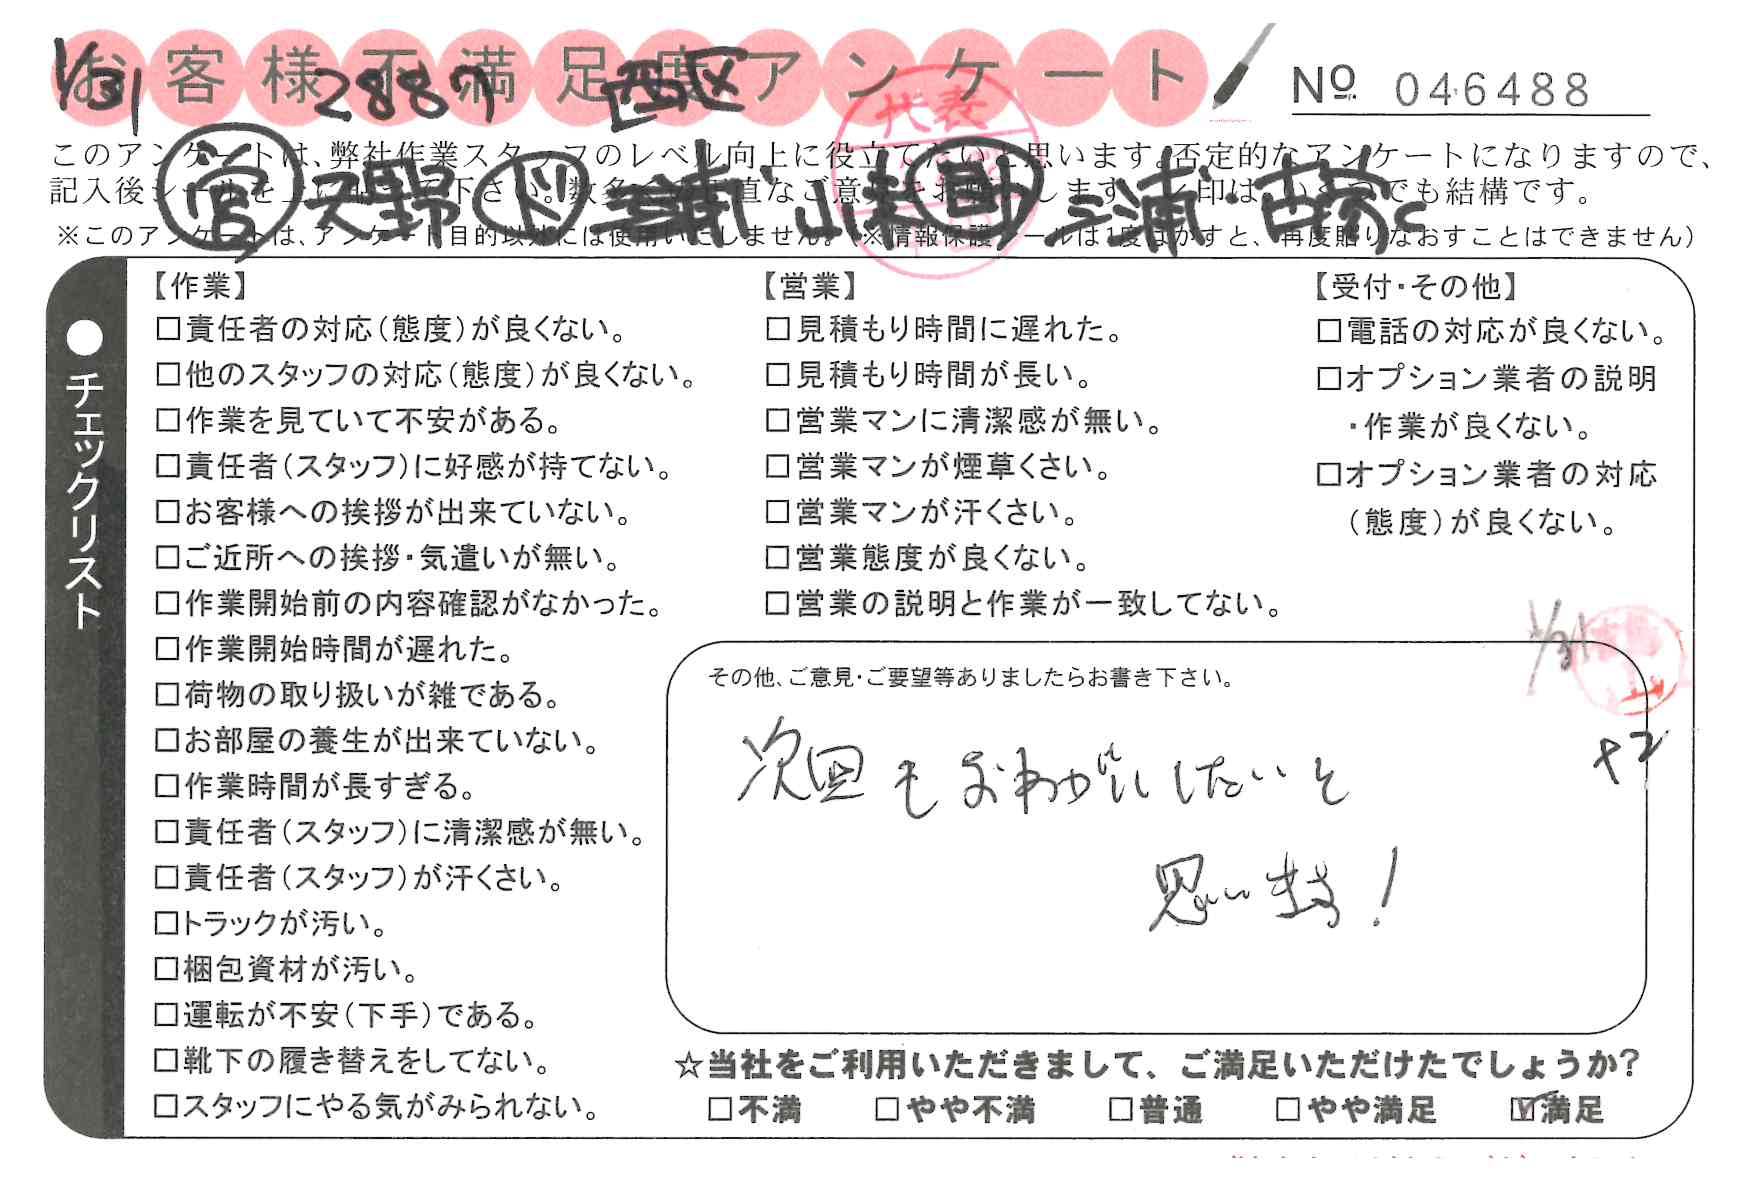 お客様不満足度アンケート
1/31 2887 西区
№ 046488
このアンケートは、弊社作業スタッフのレベル向上に役立てたいと思います。否定的なアンケートになりますので、
記入後シールを上に貼って下さい。数多くの正直なご意見をお願いします。レ印は、いくつでも結構です。
営 天野 ド 三浦 山本 助 三浦
※このアンケートは、アンケート目的以外には使用いたしません。(※情報保護シールは1度はがすと、再度貼りなおすことはできません)
代表
チェックリスト
【作業】
□責任者の対応(態度)が良くない。
□他のスタッフの対応(態度)が良くない。
□作業を見ていて不安がある。
□責任者(スタッフ)に好感が持てない。
□お客様への挨拶が出来ていない。
□ご近所への挨拶・気遣いが無い。
□作業開始前の内容確認がなかった。
□作業開始時間が遅れた。
□荷物の取り扱いが雑である。
□お部屋の養生が出来ていない。
□作業時間が長すぎる。
□責任者(スタッフ)に清潔感が無い。
□責任者(スタッフ)が汗くさい。
□トラックが汚い。
□梱包資材が汚い。
□運転が不安(下手)である。
□靴下の履き替えをしてない。
□スタッフにやる気がみられない。
【営業】
□見積もり時間に遅れた。
□見積もり時間が長い。
□営業マンに清潔感が無い。
□営業マンが煙草くさい。
□営業マンが汗くさい。
□営業態度が良くない。
□営業の説明と作業が一致してない。
【受付・その他】
□電話の対応が良くない。
□オプション業者の説明
・作業が良くない。
□オプション業者の対応
(態度)が良くない。
1/31
+2
その他、ご意見・ご要望等ありましたらお書き下さい。
次回もおねがいしたいと
思います!
☆当社をご利用いただきまして、ご満足いただけたでしょうか?
□不満 □やや不満 □普通 □やや満足 ☑満足